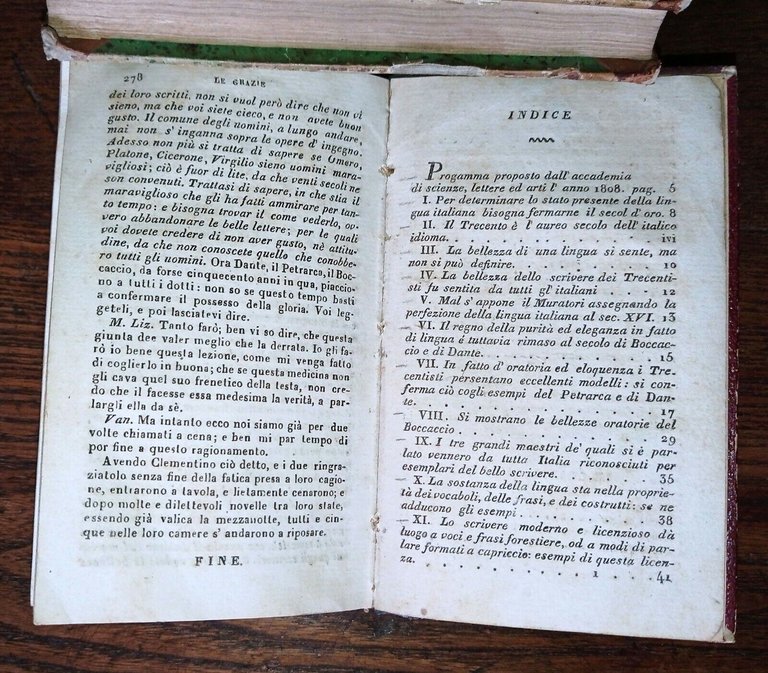 278 LE GRAZIE
dei loro scritti, non si vuol però dire che non vi
sieno, ma che voi siete cieco, e non avete buon
gusto. Il comune degli uomini, a lungo andare,
mai non s' inganna sopra le opere d' ingegno.
Adesso non più si tratta di sapere se Omero,
Platone, Cicerone, Virgilio sieno uomini mara-
vigliosi; ciò è fuor di lite, da che venti secoli ne
son convenuti. Trattasi di sapere, in che stia il
maraviglioso che gli ha fatti ammirare per tan-
to tempo: e bisogna trovar il come vederlo, ov-
vero abbandonare le belle lettere; per le quali
voi dovete credere di non aver gusto, nè attitu-
dine, da che non conoscete quello che conobbe-
ro tutti gli uomini. Ora Dante, il Petrarca, il Boc-
caccio, da forse cinquecento anni in qua, piaccio-
no a tutti i dotti: non so se questo tempo basti
a confermare il possesso della gloria. Voi leg-
geteli, e poi lasciatevi dire.
M. Liz. Tanto farò; ben vi so dire, che questa
giunta dee valer meglio che la derrata. Io gli fa-
rò io bene questa lezione, come mi venga fatto
di coglierlo in buona; che se questa medicina non
gli cava quel suo frenetico della testa, non cre-
do che il facesse essa medesima la verità, a par-
largli ella da sè.
Van. Ma intanto ecco noi siamo già per due
volte chiamati a cena; e ben mi par tempo di
por fine a questo ragionamento.
Avendo Clementino ciò detto, e i due ringra-
ziatolo senza fine della fatica presa a loro cagio-
ne, entrarono a tavola, e lietamente censarono; e
dopo molte e dilettevoli novelle tra loro state,
essendo già valica la mezzanotte, tutti e cin-
que nelle loro camere s' andarono a riposare.
FINE.
INDICE
Progamma proposto dall' accademia
di scienze, lettere ed arti l' anno 1808. pag. 5
I. Per determinare lo stato presente della lin-
gua italiana bisogna fermarne il secol d' oro. 8
II. Il Trecento è l' aureo secolo dell' italico
idioma. . . . . . . . . . . . . ivi
III. La bellezza di una lingua si sente, ma
non si può definire. . . . . . . . . 10
IV. La bellezza dello scrivere dei Trecenti-
sti fu sentita da tutti gl' italiani . . . . 12
V. Mal s' appone il Muratori assegnando la
perfezione della lingua italiana al sec. XVI. 13
VI. Il regno della purità ed eleganza in fatto
di lingua é tuttavia rimaso al secolo di Boccac-
cio e di Dante. . . . . . . . . . 15
VII. In fatto d' oratoria ed eloquenza i Tre-
centisti persentano eccellenti modelli: si con-
ferma ciò cogli esempi del Petrarca e di Dan-
te. . . . . . . . . . . . . . 17
VIII. Si mostrano le bellezze oratorie del
Boccaccio . . . . . . . . . . . 29
IX. I tre grandi maestri de' quali si è par-
lato vennero da tutta Italia riconosciuti per
esemplari del bello scrivere. . . . . . 35
X. La sostanza della lingua sta nella proprie-
tà dei vocaboli, delle frasi, e dei costrutti: se ne
adducono gli esempi . . . . . . . . 38
XI. Lo scrivere moderno e licenzioso dà
luogo a voci e frasi forestiere, od a modi di par-
lare formati a capriccio: esempi di questa licen-
za. . . . . . . . . . . . . . 41